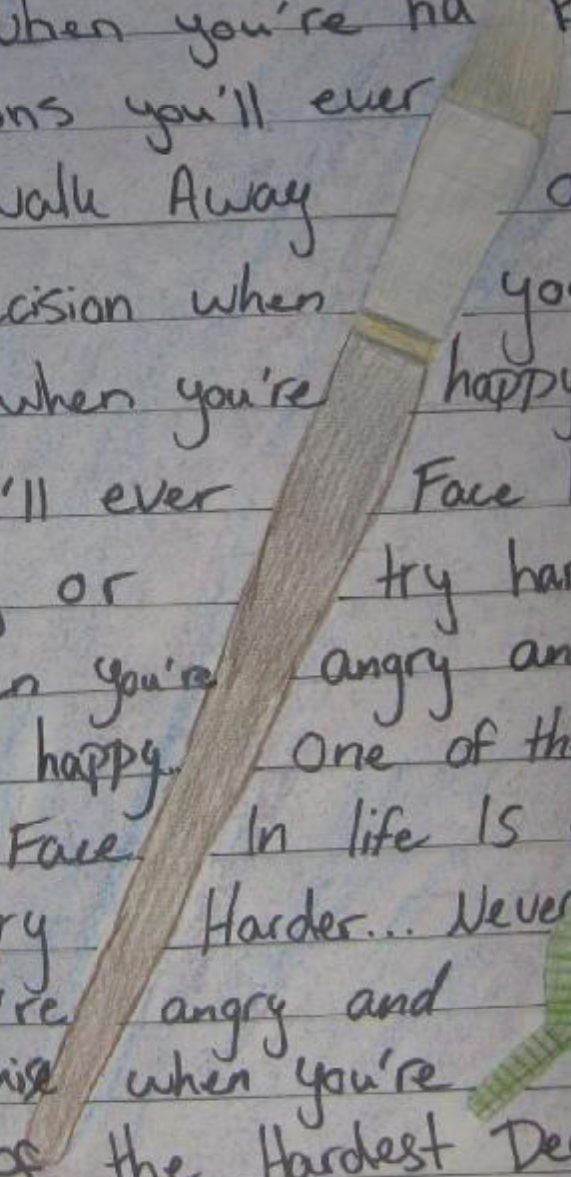 when you're ha
ons you'll ever
walk Away
cision when you
when you're happy
'll ever Face
or try har
n you're angry an
happy. One of th
Face In life Is
ry Harder... Never
're angry and
mise when you're
of the Hardest De